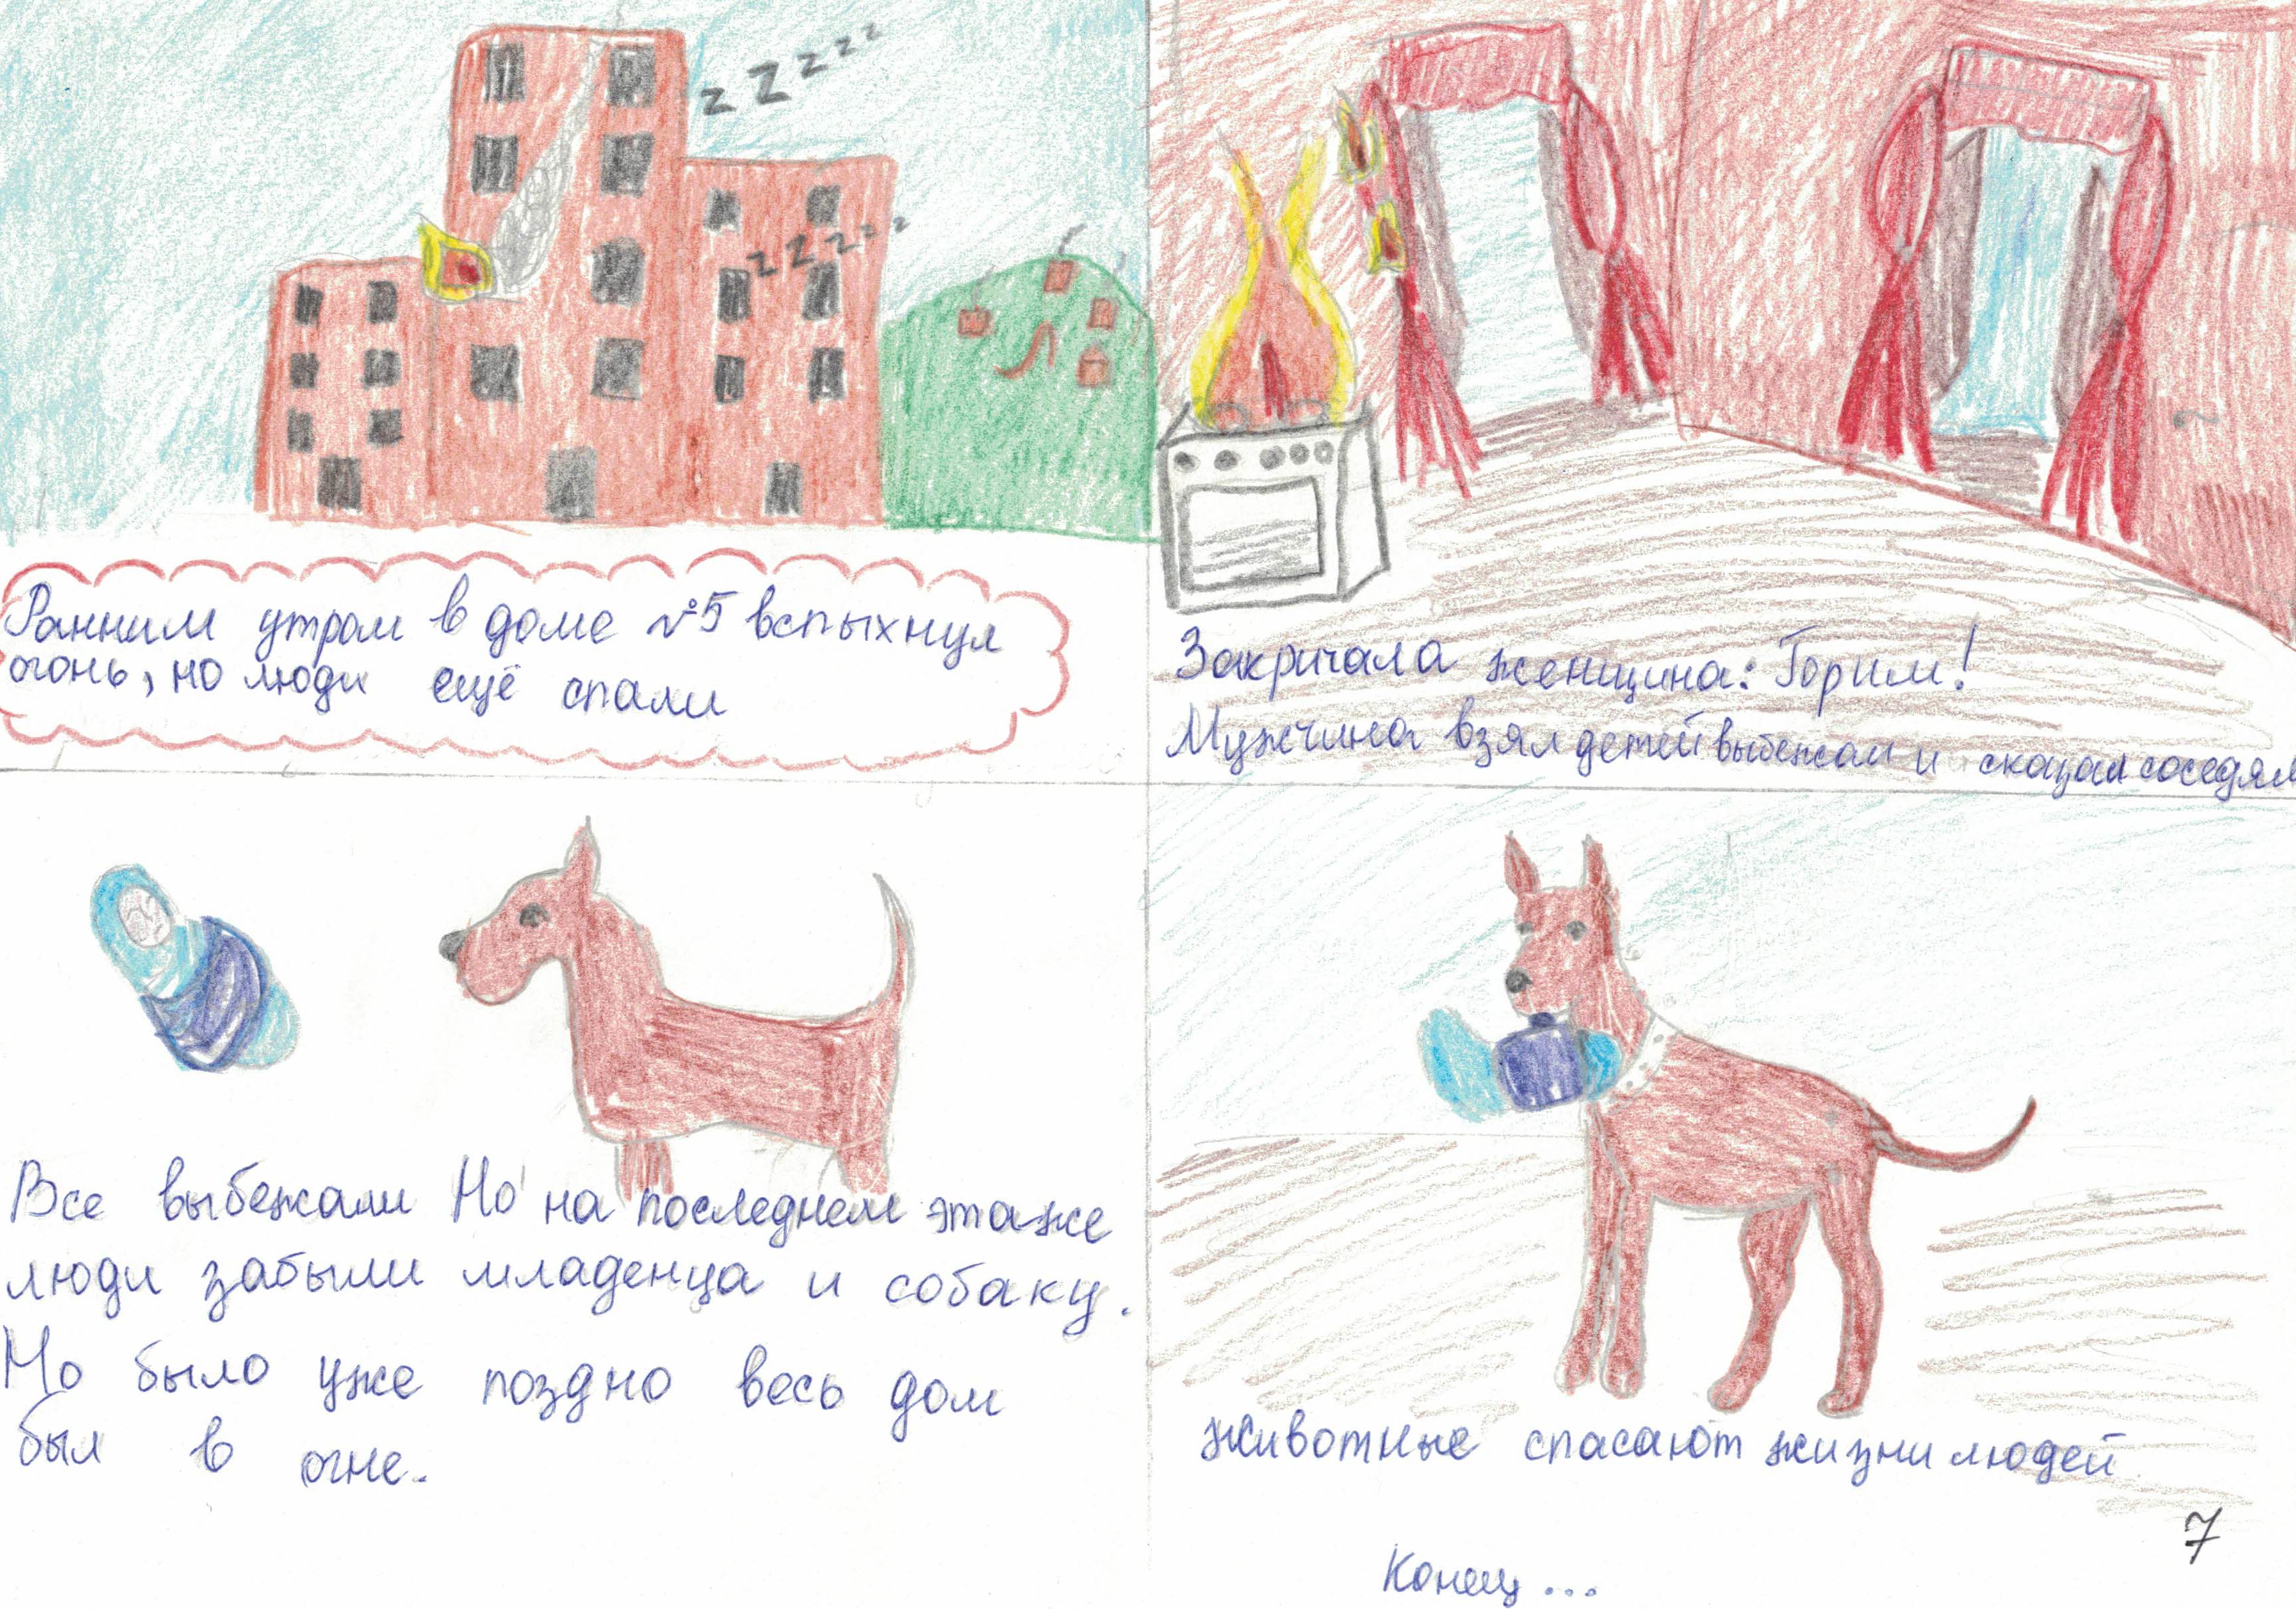 z z z z z z
z z z z z z
Ранним утром в доме №5 вспыхнул
огонь, но люди ещё спали
Закричала женщина: Горим!
Мужчина взял детей выбежал и сказал соседям
Все выбежали Но на последнем этаже
люди забыли младенца и собаку.
Но было уже поздно весь дом
был в огне.
животные спасают жизни людей
7
Конец...